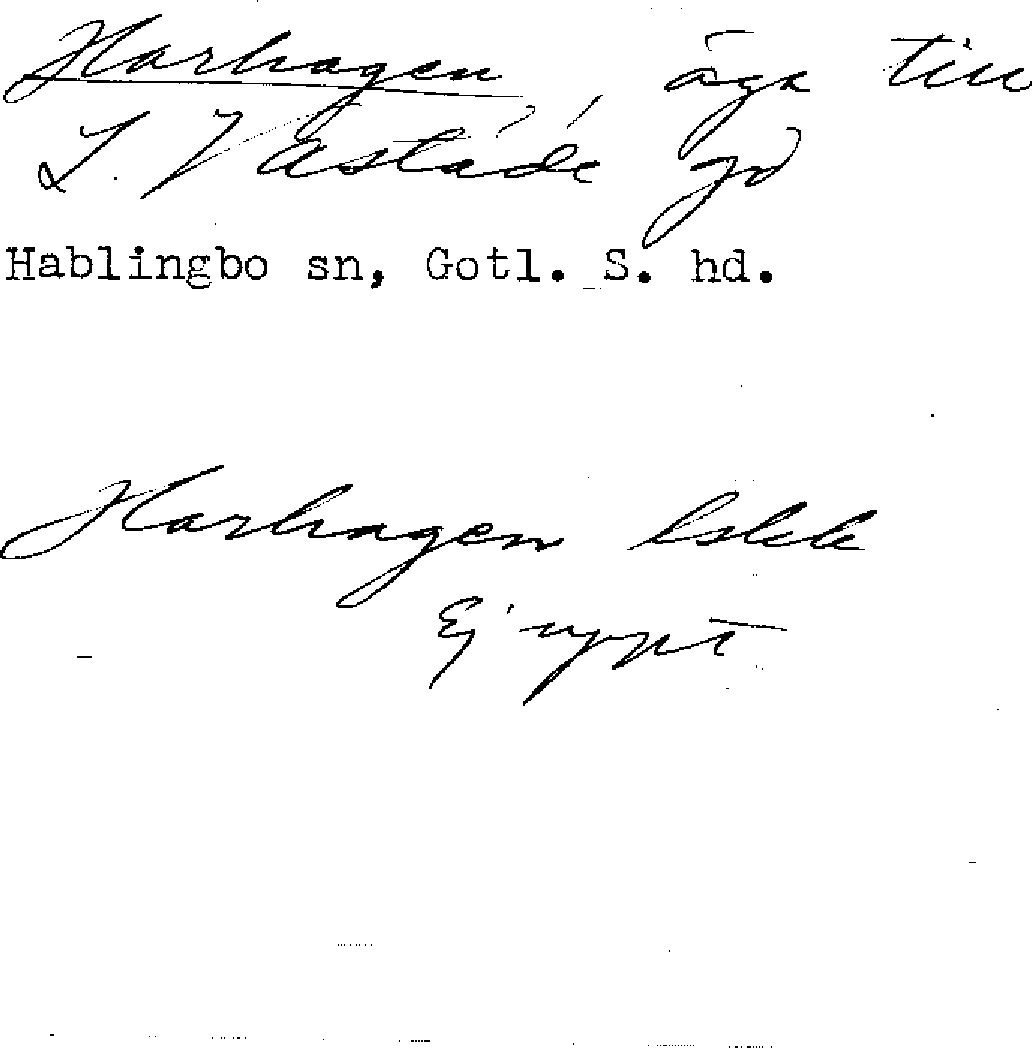 Harhagen, äga till
L. Västäde gd
Hablingbo sn, Gotl. S. hd.
Harhagen lskk
Ej uppt